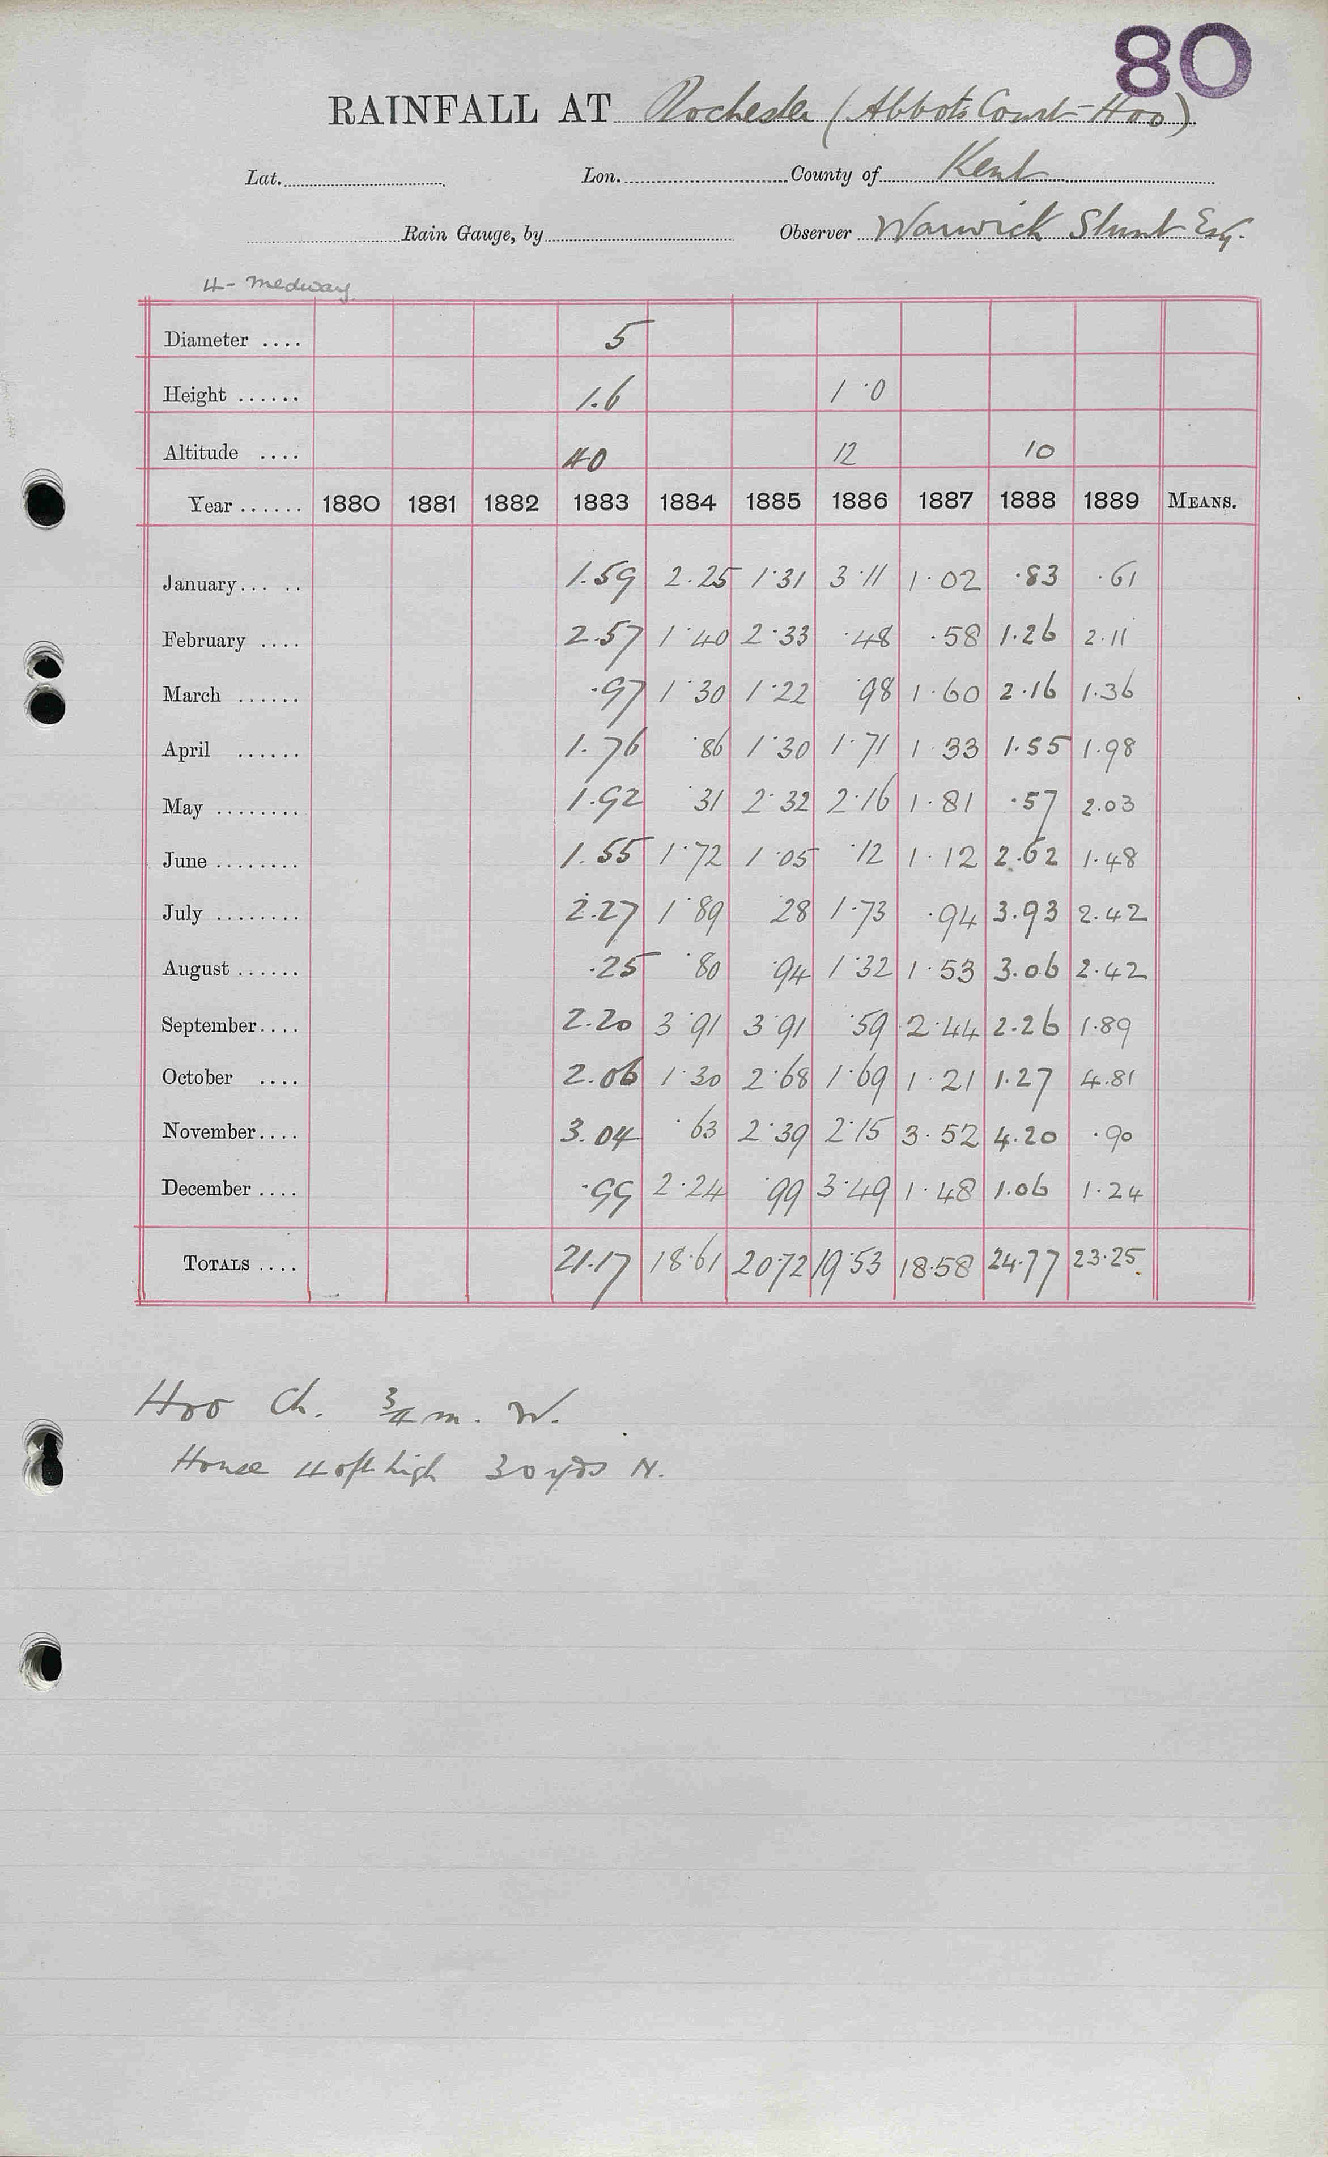 80
RAINFALL AT Rochester (Abbots Court Hoo)
Lat. Lon. County of Kent
Rain Gauge, by Observer Warwick Stunt Esq.
4 - Medway
Diameter .... 5
Height ...... 1.6 1·0
Altitude .... 40 12 10
Year ...... 1880 1881 1882 1883 1884 1885 1886 1887 1888 1889 MEANS.
January... .. 1.59 2.25 1.31 3.11 1.02 .83 .61
February .... 2.57 1.40 2.33 .48 .58 1.26 2.11
March ...... .97 1.30 1.22 .98 1.60 2.16 1.36
April ...... 1.76 .86 1.30 1.71 1.33 1.55 1.98
May ........ 1.92 .31 2.32 2.16 1.81 .57 2.03
June ........ 1.55 1.72 1.05 .12 1.12 2.62 1.48
July ........ 2.27 1.89 28 1.73 .94 3.93 2.42
August ...... .25 .80 .94 1.32 1.53 3.06 2.42
September.... 2.20 3.91 3.91 .59 2.44 2.26 1.89
October .... 2.06 1.30 2.68 1.69 1.21 1.27 4.81
November.... 3.04 .63 2.39 2.15 3.52 4.20 .90
December .... .99 2.24 .99 3.49 1.48 1.06 1.24
TOTALS .... 21.17 18.61 20.72 19.53 18.58 24.77 23.25
Hoo Ch. ¾ m. W.
House 40ft high 30 yds N.